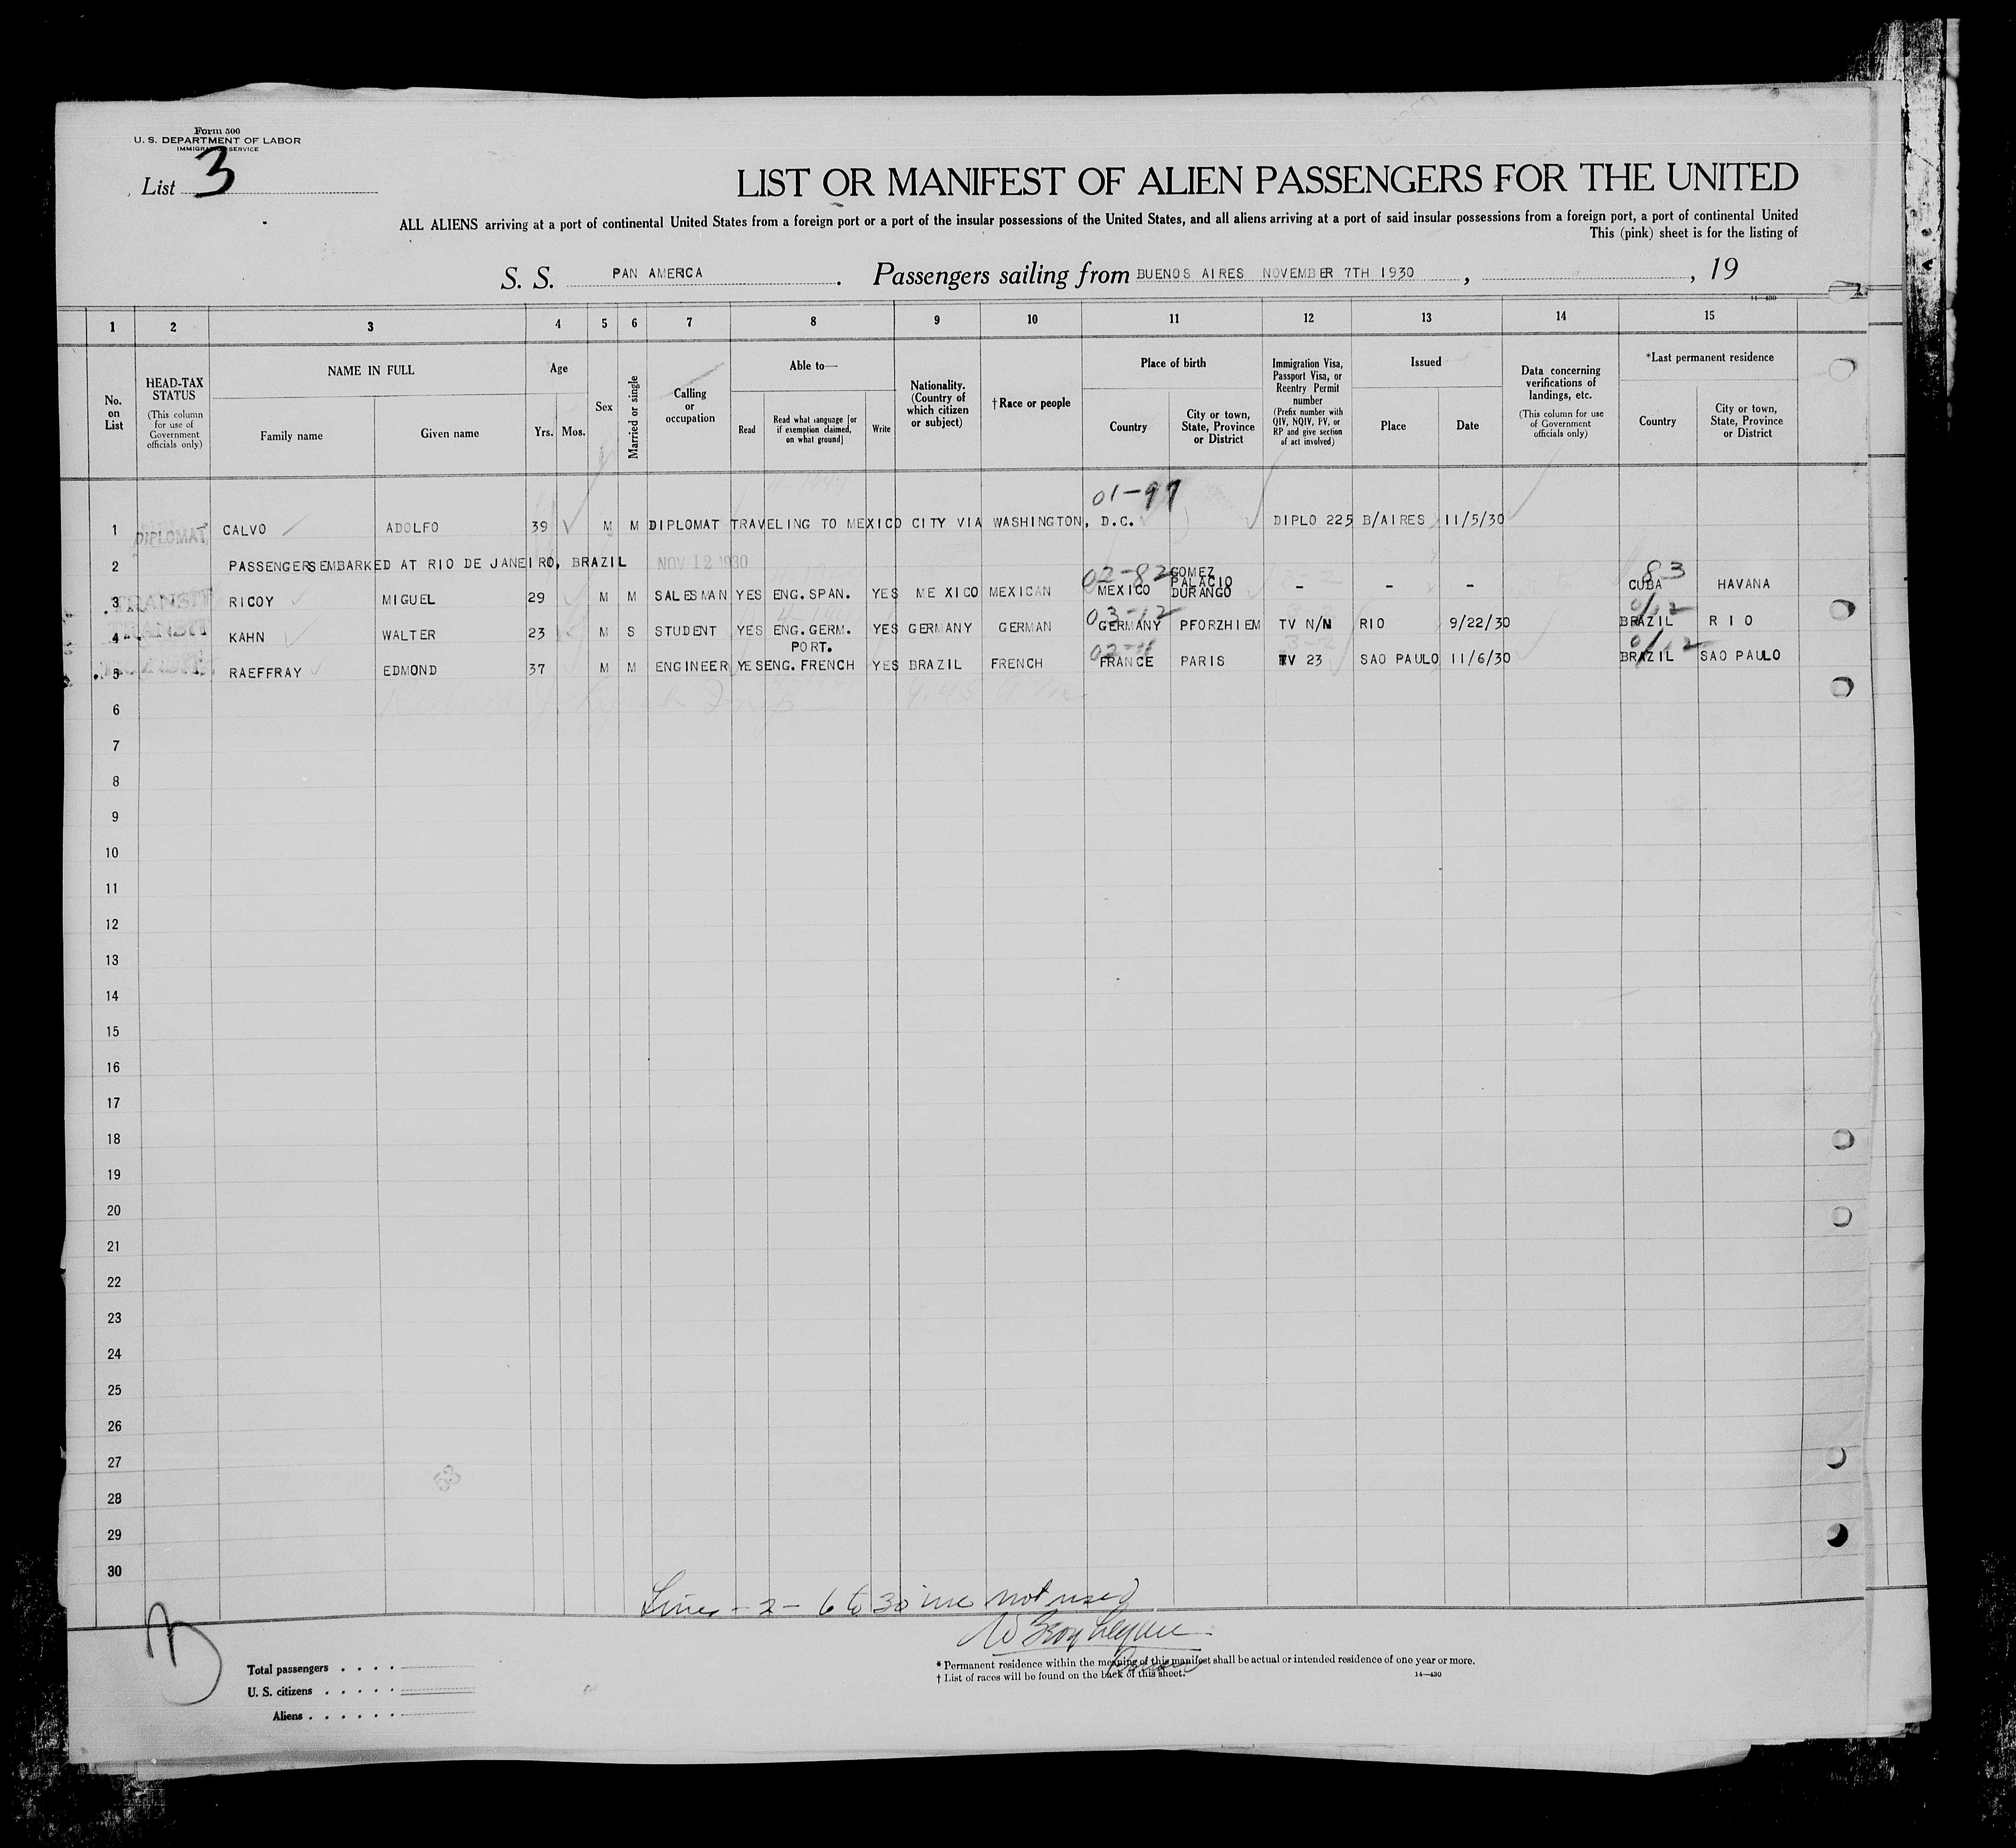 Form 500
U. S. DEPARTMENT OF LABOR
IMMIGRATION SERVICE
List 3
LIST OR MANIFEST OF ALIEN PASSENGERS FOR THE UNITED
ALL ALIENS arriving at a port of continental United States from a foreign port or a port of the insular possessions of the United States, and all aliens arriving at a port of said insular possessions from a foreign port, a port of continental United
This (pink) sheet is for the listing of
S. S. PAN AMERICA. Passengers sailing from BUENOS AIRES NOVEMBER 7TH 1930, , 19
14—430
1 2 3 4 5 6 7 8 9 10 11 12 13 14 15
No. on List
HEAD-TAX STATUS (This column for use of Government officials only)
NAME IN FULL
Family name
Given name
Age
Yrs. Mos.
Sex
Married or single
Calling or occupation
Able to—
Read
Read what language [or if exemption claimed, on what ground]
Write
Nationality. (Country of which citizen or subject)
†Race or people
Place of birth
Country
City or town, State, Province or District
Immigration Visa, Passport Visa, or Reentry Permit number (Prefix number with QIV, NQIV, PV, or RP and give section of act involved)
Issued
Place
Date
Data concerning verifications of landings, etc. (This column for use of Government officials only)
*Last permanent residence
Country
City or town, State, Province or District
01-97
1 DIPLOMAT CALVO ADOLFO 39 M M DIPLOMAT TRAVELING TO MEXICO CITY VIA WASHINGTON, D.C. DIPLO 225 B/AIRES 11/5/30
2 PASSENGERS EMBARKED AT RIO DE JANEIRO, BRAZIL NOV 12 1930
02-82 83
3 TRANSIT RICOY MIGUEL 29 M M SALESMAN YES ENG. SPAN. YES MEXICO MEXICAN MEXICO GOMEZ PALACIO DURANGO - - - CUBA HAVANA
03-12
4 TRANSIT KAHN WALTER 23 M S STUDENT YES ENG. GERM. YES GERMANY GERMAN GERMANY PFORZHIEM TV N/N RIO 9/22/30 BRAZIL RIO
5 TRANSIT RAEFFRAY EDMOND 37 M M ENGINEER YES PORT. ENG. FRENCH YES BRAZIL FRENCH FRANCE PARIS TV 23 SAO PAULO 11/6/30 BRAZIL SAO PAULO
6
7
8
9
10
11
12
13
14
15
16
17
18
19
20
21
22
23
24
25
26
27
28
29
30
Lines - 2 - 6 to 30 inc not used
Total passengers . . . .
U. S. citizens . . . . .
Aliens . . . . . .
* Permanent residence within the meaning of this manifest shall be actual or intended residence of one year or more.
† List of races will be found on the back of this sheet.
14—430